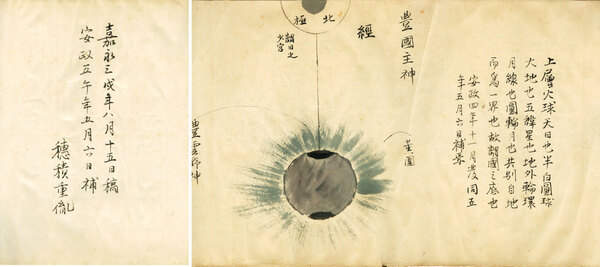 上層火球天日也半白圓球
大地也五緯星也地外輪環
月線也圓輪月也共別自地
而為一界也故謂國之底也
安政四年十一月 同五
年五月六日補
豐國主神
經
北極
謂日之
宮
豊雲野神
嘉永三戌年八月十五日稿
安政五午年五月六日補
穗積重胤